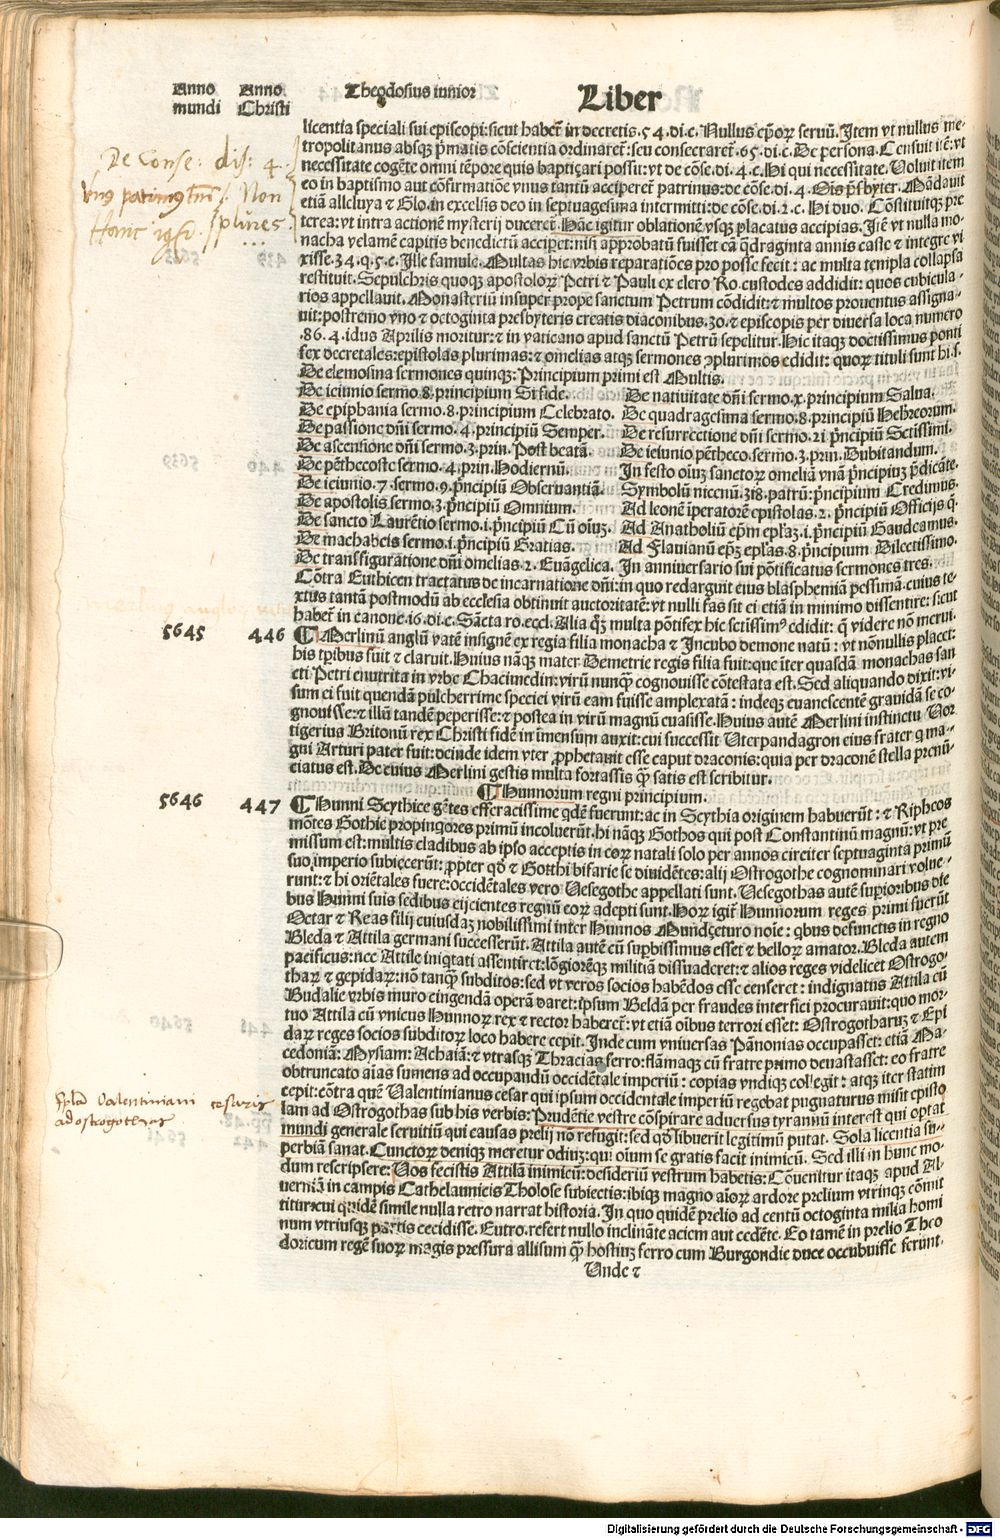 Anno mundi
Anno Christi
Theodosius iunior
Liber
licentia speciali sui episcopi: sicut habet̃ in decretis. 54. di. c. Nullus ep̃oꝝ seruũ. Item vt nullus me-
tropolitanus absqꝫ p̃matis cõscientia ordinaret̃: seu consecraret̃. 65. di. c. De persona. Censuit itẽ: vt
necessitate cogẽte omni tẽpore quis baptiçari possit: vt de cõse. di. 4. c. Hi qui necessitate. Voluit item
eo in baptismo aut cõfirmatiõe vnus tantũ acciperet̃ patrinus: de cõse. di. 4. Dis p̃sbyter. Mãdauit
etiã alleluya ⁊ Glo. in excelsis deo in septuagesima intermitti: de cõse. di. 2. c. Hi duo. Cõstituitqꝫ pre
terea: vt intra actionẽ mysterij duceret̃. Hãc igitur oblationẽ vsqꝫ placatus accipias. Itẽ vt nulla mo-
nacha velamẽ capitis benedictũ accipet: nisi approbatũ fuisset eã q̃draginta annis caste ⁊ integre vi
xisse. 34. q. 5. c. Ille famule. Multas hic vrbis reparatiões pro posse fecit: ac multa templa collapsa
restituit. Sepulchris quoqꝫ apostoloꝝ Petri ⁊ Pauli ex clero Ro. custodes addidit: quos cubicula-
rios appellauit. Monasteriũ insuper prope sanctum Petrum cõdidit: ⁊ multos prouentus assigna-
uit: postremo vno ⁊ octoginta presbyteris creatis diaconibus. 30. ⁊ episcopis per diuersa loca numero
.86. 4. idus Aprilis moritur: ⁊ in vaticano apud sanctũ Petrũ sepelitur. Hic itaqꝫ doctissimus ponti
fex decretales: epistolas plurimas: ⁊ omelias atqꝫ sermones ꝯplurimos edidit: quoꝝ tituli sunt hi. s.
De elemosina sermones quinqꝫ: Principium primi est Multis.
De ieiunio sermo. 8. principium Si fide.
De epiphania sermo. 8. principium Celebrato.
De passione dñi sermo. 4. principiũ Semper.
De ascensione dñi sermo. 3. prin. Post beatã.
De pẽthecoste sermo. 4. prin. Hodiernũ.
De ieiunio. 7. sermo. 9. p̃ncipiũ Obseruantiã.
De apostolis sermo. 3. p̃ncipiũ Omnium.
De sancto Laurẽtio sermo. i. p̃ncipiũ Cũ oĩuꝫ.
De machabeis sermo. i. p̃ncipiũ Gratias.
De transfiguratione dñi omelias. 2. Euãgelica.
De natiuitate dñi sermo. x. principium Salua.
De quadragesima sermo. 8. principiũ Hebreorum.
De resurrectione dñi sermo. 21 p̃ncipiũ Sctissimi.
De ieiunio pẽtheco. sermo. 3. prin. Dubitandum.
In festo oĩuꝫ sanctoꝝ omeliã vnã p̃ncipiuꝫ p̃dicãte.
Symbolũ nicenũ. 318. patrũ: p̃ncipium Credimus.
Ad leonẽ iperatorẽ epistolas. 2. p̃ncipiũ Officijs q̃.
Ad Anatholiũ ep̃m ep̃laꝫ. i. p̃ncipiũ Gaudeamus.
Ad Flauianũ ep̃ꝫ ep̃las. 8. p̃ncipium Dilectissimo.
In anniuersario sui põtificatus sermones tres.
Cõtra Euthicen tractatus de incarnatione dñi: in quo redarguit eius blasphemiã pessimã. cuius te-
xtus tantã postmodũ ab ecclesia obtinuit auctoritatẽ: vt nulli fas sit ei etiã in minimo dissentire: sicut
habet̃ in canone. 16. di. c. Sãcta ro. eccl. Alia q̃ꝫ multa põtifex hic sctissimꝰ edidit: q̃ videre nõ merui.
5645 446 ¶ Merlinũ anglũ vatẽ insignẽ ex regia filia monacha ⁊ Incubo demone natũ: vt nõnullis placet:
his tp̃ibus fuit ⁊ claruit. Huius nãqꝫ mater Demetrie regis filia fuit: que ĩter quasdã monachas san
cti Petri enutrita in vrbe Chacimedin: virũ nunq̃ cognouisse cõtestata est. Sed aliquando dixit: vi-
sum ei fuit quendã pulcherrime speciei virũ eam fuisse amplexatã: indeqꝫ euanescentẽ grauidã se co-
gnouisse: ⁊ illũ tandẽ peperisse: ⁊ postea in virũ magnũ euasisse. Huius autẽ Merlini instinctu Vor
tigerius Britonũ rex Christi fidẽ in ĩmensum auxit: cui successit Uterpandagron eius frater q̃ ma-
gni Arturi pater fuit: deinde idem vter ꝓphetauit esse caput draconis: quia per draconẽ stella prenũ-
ciatus est. De cuius Merlini gestis multa fortassis q̃ satis est scribitur.
¶ Hunnorum regni principium.
5646 447 ¶ Hunni Scythice gẽtes efferacissime q̃dẽ fuerunt: ac in Scythia originem habuerũt: ⁊ Ripheos
mõtes Gothie propinq̃ores primũ incoluerũt. hi nãqꝫ Gothos qui post Constantinũ magnũ: vt pre
missum est: multis cladibus ab ipso acceptis in eoꝝ natali solo per annos circiter septuaginta primũ
suo imperio subiecerũt: ꝓpter qđ ⁊ Gotthi bifarie se diuidẽtes: alij Ostrogothe cognominari volue-
runt: ⁊ hi oriẽtales fuere: occidẽtales vero Uesegothe appellati sunt. Uesegothas autẽ supioribus die
bus Hunni suis sedibus eijcientes regnũ eoꝝ adepti sunt. Hoꝝ igit̃ Hunnorum reges primi fuerũt
Octar ⁊ Reas filij cuiusdaꝫ nobilissimi inter Hunnos Mundçeturo noĩe: q̃bus defunctis in regno
Bleda ⁊ Attila germani successerũt. Attila autẽ cũ supbissimus esset ⁊ belloꝝ amator. Bleda autem
pacificus: nec Attile iniq̃tati assentiret: lõgioremqꝫ militiã dissuaderet: ⁊ alios reges videlicet Ostrogo-
thaꝝ ⁊ gepidaꝝ: nõ tanq̃ subditos: sed vt veros socios habẽdos esse censeret: indignatus Attila cũ
Budalie vrbis muro cingendã operã daret: ipsum Beldã per fraudes interfici procurauit: quo mor-
tuo Attila cũ vnicus Hunnoꝝ rex ⁊ rector haberet̃: vt etiã oĩbus terrori esset: Ostrogotharuꝫ ⁊ Epi
daꝝ reges socios subditoꝝ loco habere cepit. Inde cum vniuersas Pãnonias occupasset: etiã Ma-
cedoniã: Mysiam: Achaiã: ⁊ vtrasqꝫ Thracias ferro: flãmaqꝫ cũ fratre primo deuastasset: eo fratre
obtruncato aĩas sumens ad occupandũ occidẽtale imperiũ: copias vndiqꝫ collegit: atqꝫ iter statim
cepit: cõtra quẽ Ualentinianus cesar qui ipsum occidentale imperiũ regebat pugnaturus misit episto
lam ad Ostrogothas sub his verbis: Prudẽtie vestre cõspirare aduersus tyrannũ interest qui optat
mundi generale seruitiũ qui causas prelij nõ refugit: sed qđ libuerit legitimũ putat. Sola licentia su-
perbiã sanat. Cunctoꝝ deniqꝫ meretur odiuꝫ: qui oĩum se gratis facit inimicũ. Sed illi in hunc mo-
dum rescripsere: Uos fecistis Attilã inimicũ: desideriũ vestrum habetis: Cõuenitur itaqꝫ apud Al-
uerniã in campis Cathelaunieis Tholose subiectis: ibiqꝫ magno aĩoꝝ ardore prelium vtrinqꝫ cõmit
titur: cui quidẽ simile nulla retro narrat historia. In quo quidẽ prelio ad centũ octoginta milia homi
num vtriusqꝫ partis cecidisse. Eutro. refert nullo inclinãte aciem aut cedẽte. Eo tamẽ in prelio Theo
doricum regẽ suoꝝ magis pressura allisum q̃ hostiuꝫ ferro cum Burgondie duce occubuisse ferunt.
Unde ⁊
De Conse: dis: 4.
vnꝰ patrinꝰ tm̃ /. Non
plures
Epl̃a Valentiniani cesaris
ad ostrogothas
Digitalisierung gefördert durch die Deutsche Forschungsgemeinschaft - DFG